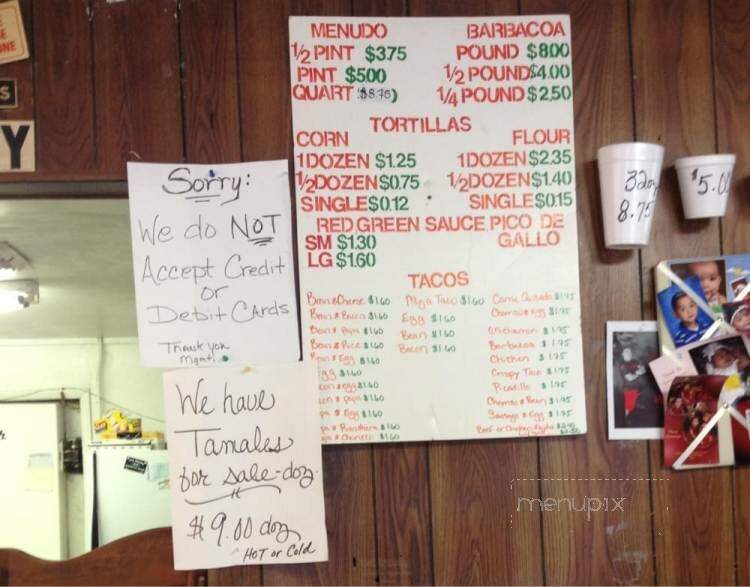 Y
S
E
NE
Sorry:
We do NOT
Accept Credit
or
Debit CArds
Thank you
Mgmt.
We have
Tamales
for sale-doz.
$9.00 doz
HOT or Cold
MENUDO
1/2 PINT $3.75
PINT $5.00
QUART $8.75)
BARBACOA
POUND $8.00
1/2 POUND $4.00
1/4 POUND $2.50
TORTILLAS
CORN
1 DOZEN $1.25
1/2 DOZEN $0.75
SINGLE $0.12
FLOUR
1 DOZEN $2.35
1/2 DOZEN $1.40
SINGLE $0.15
RED GREEN SAUCE, PICO DE
GALLO
SM $1.30
LG $1.60
TACOS
Bean & Cheese $1.60
Bean & Bacon $1.60
Bean & Papa $1.60
Bean & Rice $1.60
Bean & Egg $1.60
$1.60
egg $1.60
& papa $1.60
& Egg $1.60
& Ranchera $1.60
& Chorizo $1.60
Mija Taco $1.60
Egg $1.60
Bean $1.60
Bacon $1.60
Carne Guisada $1.95
Chorizo & Egg $1.95
Chicharron $1.95
Barbacoa $1.95
Chicken $1.95
Crispy Taco $1.95
Picadillo $1.95
Chorizo & Bean $1.95
Sausage & Egg $1.95
Beef or Chicken Fajita
32oz
8.75
$5.0
menupix